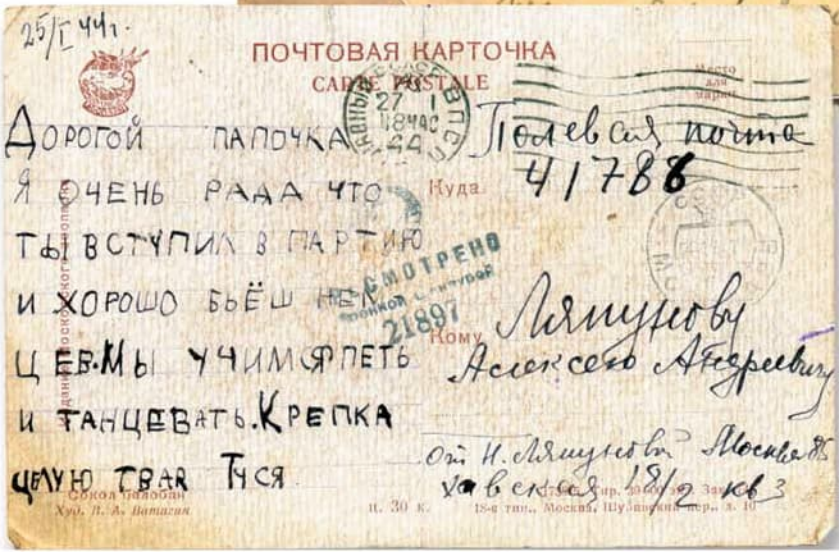 25/I 44г.
ПОЧТОВАЯ КАРТОЧКА
CARTE POSTALE
Место
для
марки
27 1
18 ЧАС
44
ДОРОГОЙ ПАПОЧКА
Я ОЧЕНЬ РАДА ЧТО
ТЫ ВСТУПИЛ В ПАРТИЮ
И ХОРОШО БЬЁШ НЕМ
ЦЕВ. МЫ УЧИМСЯ ПЕТЬ
И ТАНЦЕВАТЬ. КРЕПКА
ЦЕЛУЮ ТВАЯ ТУСЯ
Куда
Полевая почта
41788
ПРОСМОТРЕНО
Военной Цензурой
21897
Кому
Ляпунову
Алексею Андреевичу
От Н. Ляпуновой Москва
Хавская 18/2 кв 3
Сокол балобан
Худ. В. А. Ватагин
Ц. 30 к.
18-я тип., Москва, Шубинский пер., д. 10